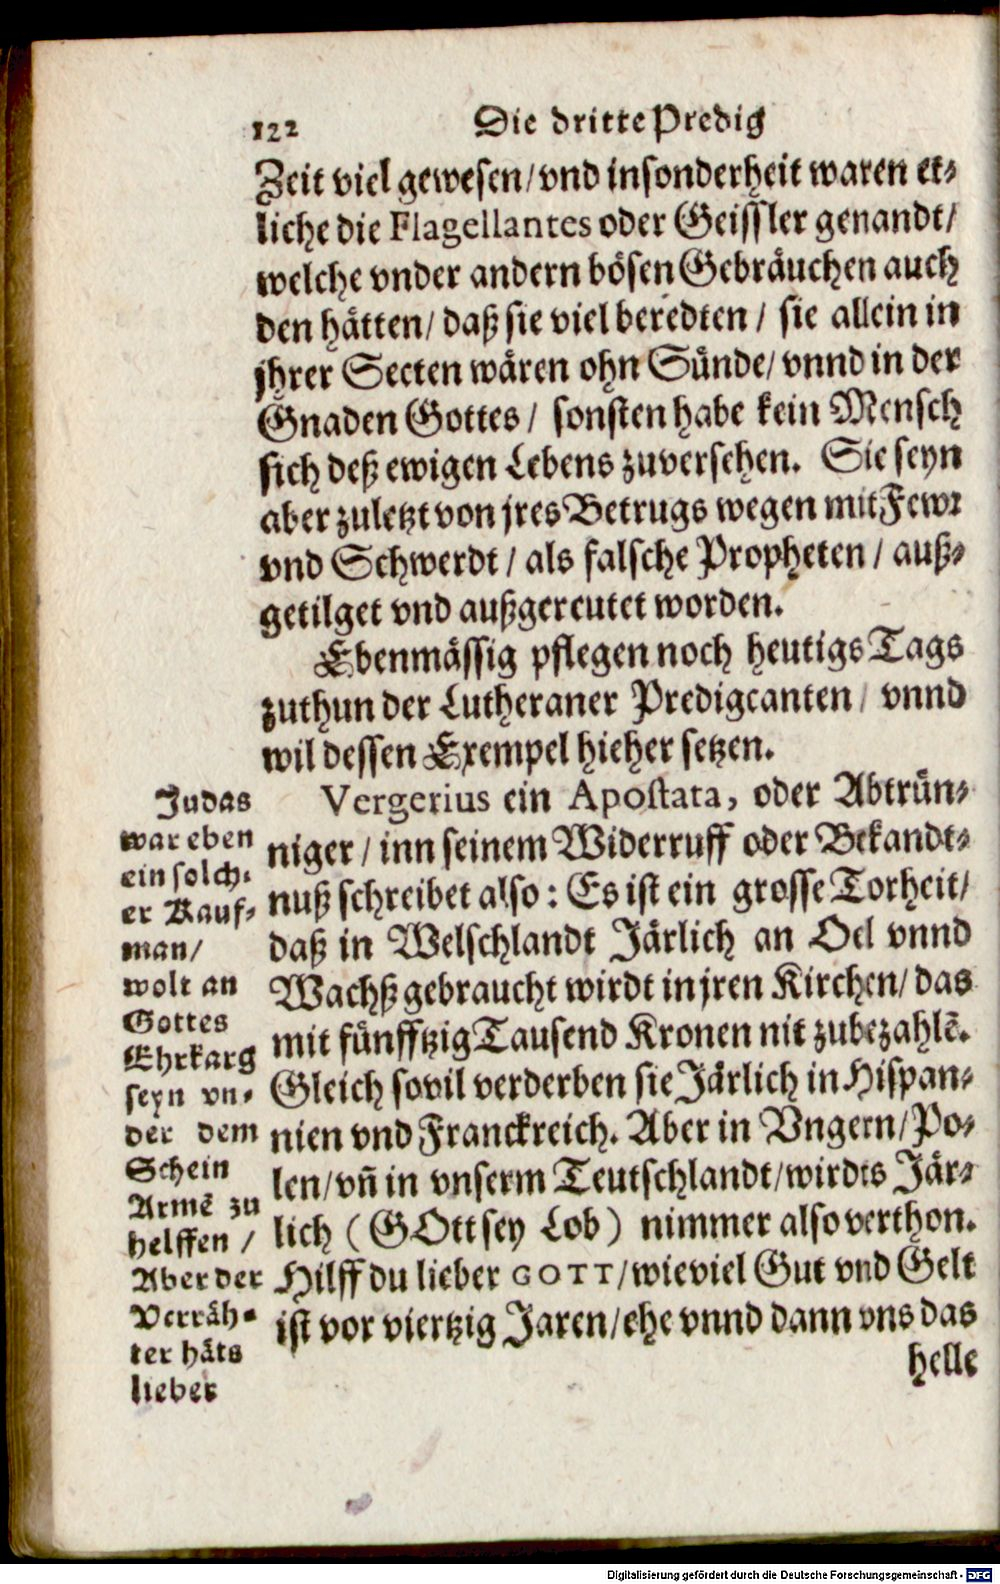 122 Die dritte Predig
Zeit viel gewesen/vnd insonderheit waren et-
liche die Flagellantes oder Geissler genandt/
welche vnder andern bösen Gebräuchen auch
den hätten/daß sie viel beredten/ sie allein in
jhrer Secten wären ohn Sünde/vnnd in der
Gnaden Gottes/ sonsten habe kein Mensch
sich deß ewigen Lebens zuversehen. Sie seyn
aber zuletzt von jres Betrugs wegen mit Fewr
vnd Schwerdt/als falsche Propheten/auß-
getilget vnd außgereutet worden.
Ebenmässig pflegen noch heutigs Tags
zuthun der Lutheraner Predigcanten/ vnnd
wil dessen Exempel hieher setzen.
Vergerius ein Apostata, oder Abtrün-
niger/inn seinem Widerruff oder Bekandt-
nuß schreibet also: Es ist ein grosse Torheit/
daß in Welschlandt Järlich an Oel vnnd
Wachß gebraucht wirdt in jren Kirchen/das
mit fünfftzig Tausend Kronen nit zubezahlē.
Gleich sovil verderben sie Järlich in Hispan-
nien vnd Franckreich. Aber in Vngern/Po-
len/vñ in vnserm Teutschlandt/wirdts Jär-
lich (GOtt sey Lob) nimmer also verthon.
Hilff du lieber GOTT/wieviel Gut vnd Gelt
ist vor viertzig Jaren/ehe vnnd dann vns das
helle
Judas
war eben
ein solch-
er Kauf-
man/
wolt an
Gottes
Ehrkarg
seyn vn-
der dem
Schein
Armē zu
helffen/
Aber der
Verräh-
ter häts
lieber
Digitalisierung gefördert durch die Deutsche Forschungsgemeinschaft - DFG